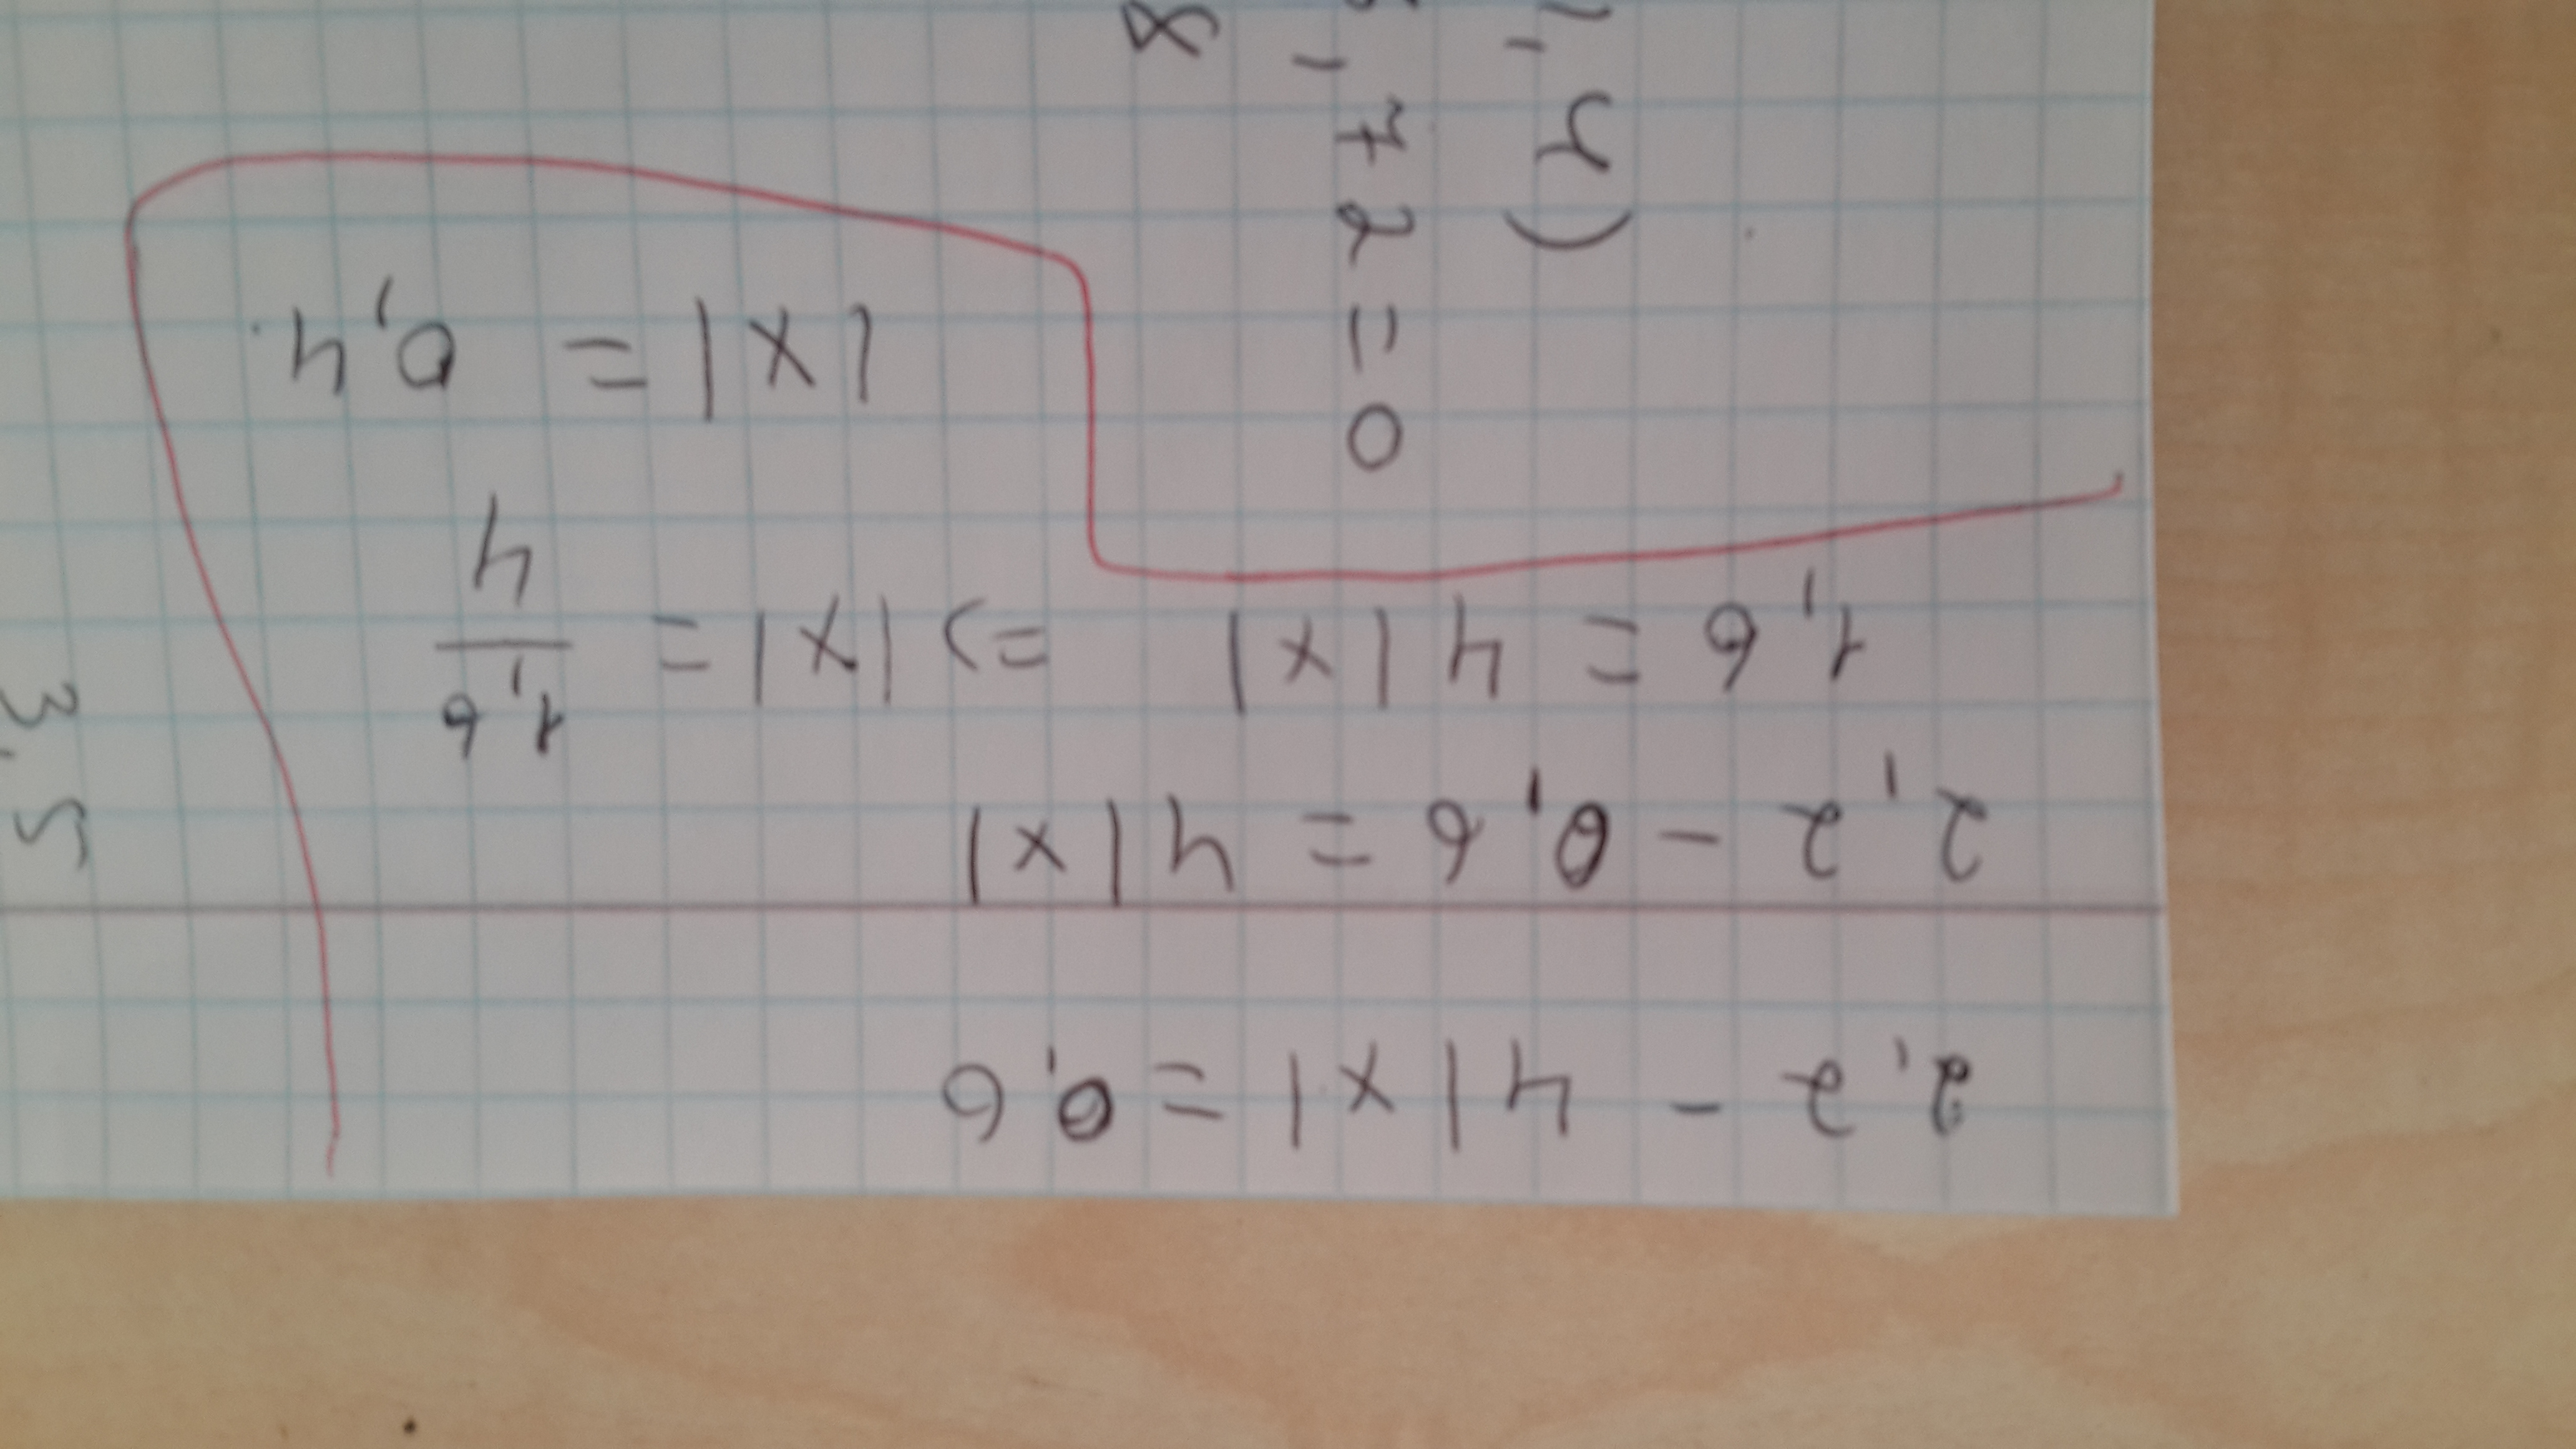 2,2 - 4|x| = 0,6
2,2 - 0,6 = 4|x|
1,6 = 4|x| => |x| = 1,6/4
|x| = 0,4.
, 4)
, 72 = 0
8
3,5